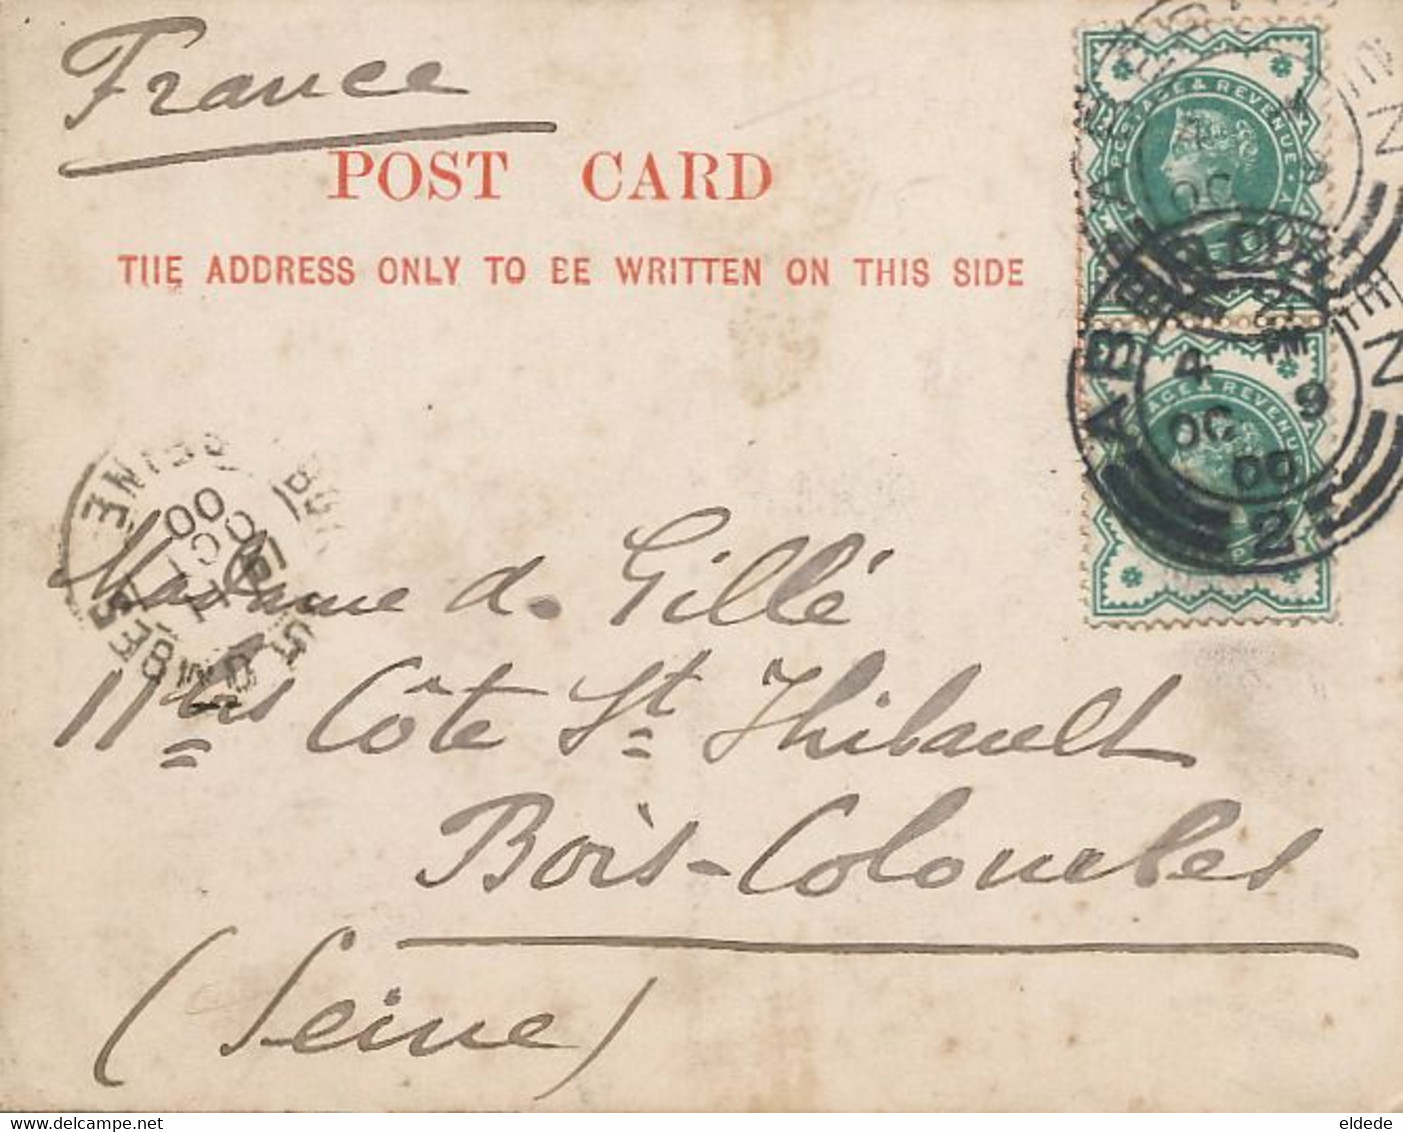 France
POST CARD
THE ADDRESS ONLY TO BE WRITTEN ON THIS SIDE
POSTAGE & REVENUE
ABERDEEN
4 PM
OC 9
00
2
AGE & REVENU
BOIS
SEINE
OCT
00
Madame d. Gillé
11 bis Côte St Thibault
Bois-Colombes
(Seine)
www.delcampe.net
eldede